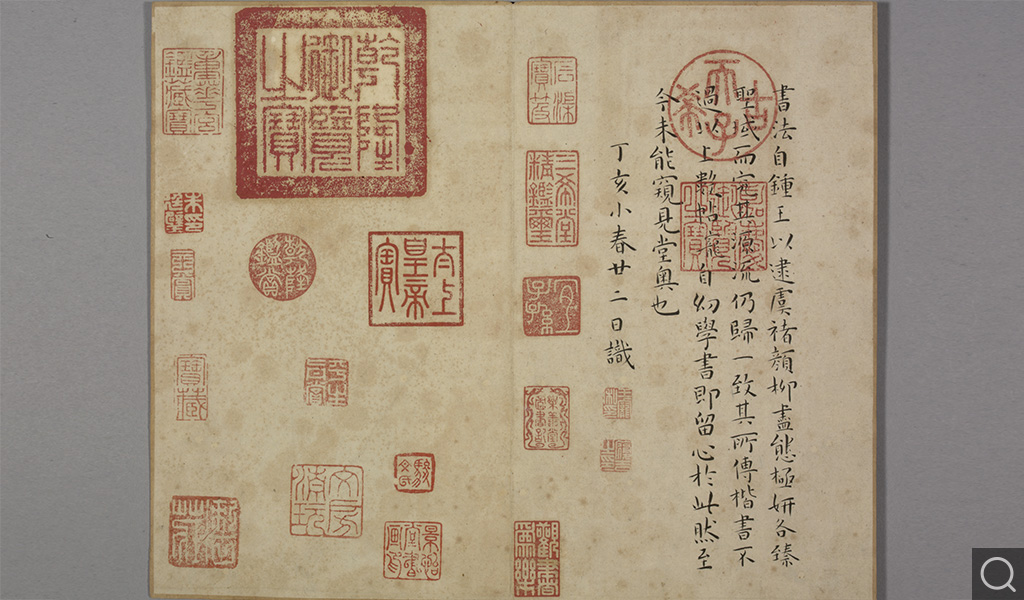 書法自鍾王以逮虞褚顏柳盡態極妍各臻
聖域而究其源流仍歸一致其所傳楷書不
過以上數帖寵自幼學書即留心於此然至
今未能窺見堂奧也
丁亥小春廿二日識
古希天子
嘉慶御覽之寶
石渠寶笈
三希堂精鑑璽
宜子孫
觀書為樂
乾隆御覽之寶
太上皇帝之寶
乾隆鑑賞
重華宮鑑藏寶
寶藏
文房清玩